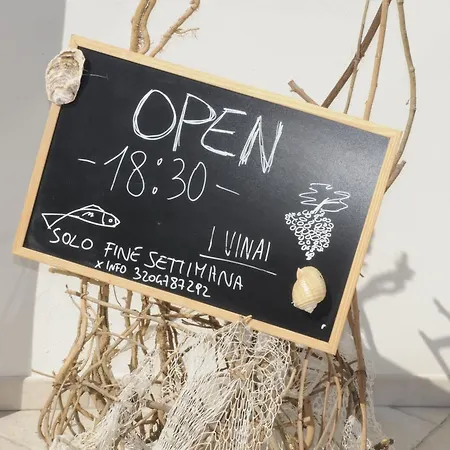 OPEN
-18:30-
I VINAI
SOLO FINE SETTIMANA
X INFO 3204787292